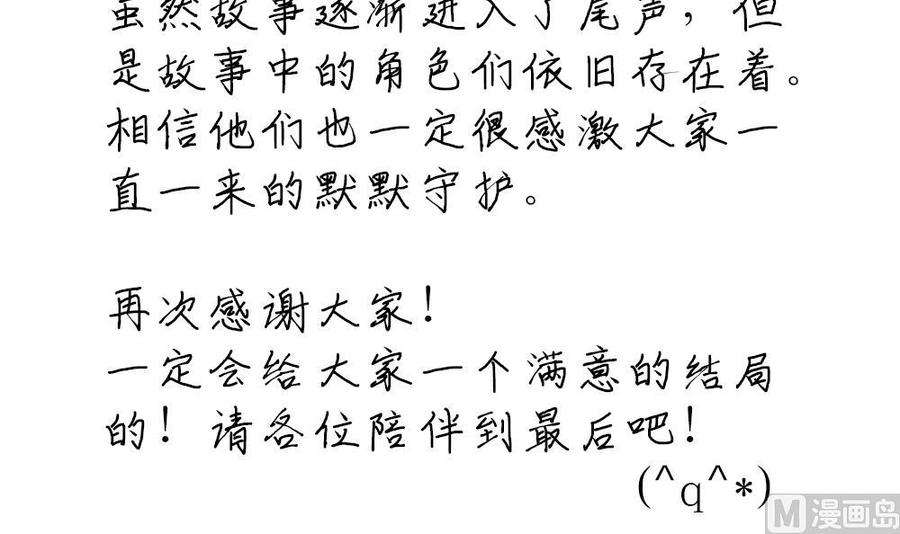 虽然故事逐渐进入了尾声，但
是故事中的角色们依旧存在着。
相信他们也一定很感激大家一
直一来的默默守护。
再次感谢大家！
一定会给大家一个满意的结局
的！请各位陪伴到最后吧！
(^q^*)
M漫画岛